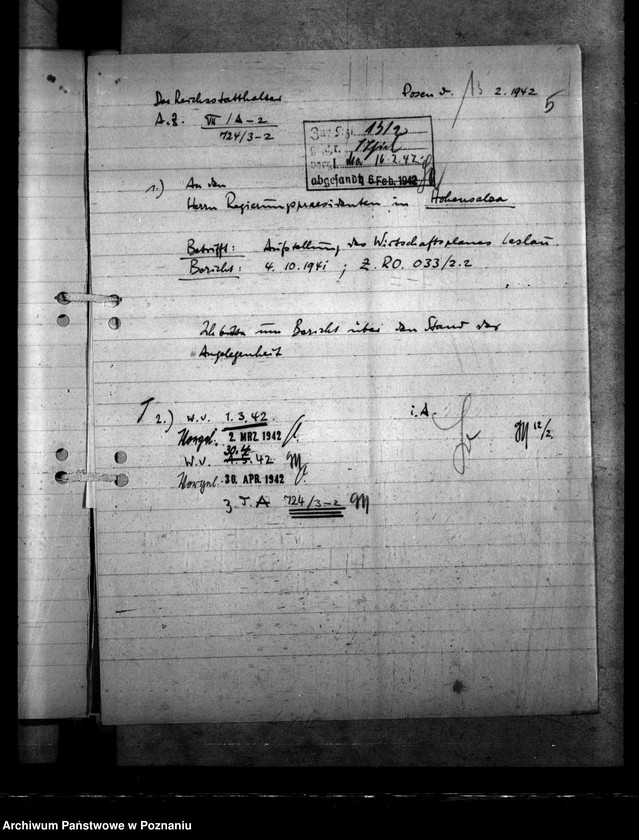 Der Reichsstatthalter
Posen d. 13 2.1942
5
A.Z. VII/A-2
724/3-2
Zur Kzl. 13/2
16.2.42
abgesandt 6 Feb. 1942
1.) An den
Herrn Regierungspraesidenten in Hohensalza
Betrifft: Aufstellung des Wirtschaftsplanes Leslau.
Bericht: 4.10.1941; Z. RO. 033/2.2
Ich bitte um Bericht über den Stand der
Angelegenheit
2.) W.v. 1.3.42.
i.A.
12/2.
Vorgel. 2. MRZ. 1942
30.4.
W.v. 1.5.42
Vorgel. 30. APR. 1942
z.d.A 724/3-2
Archiwum Państwowe w Poznaniu